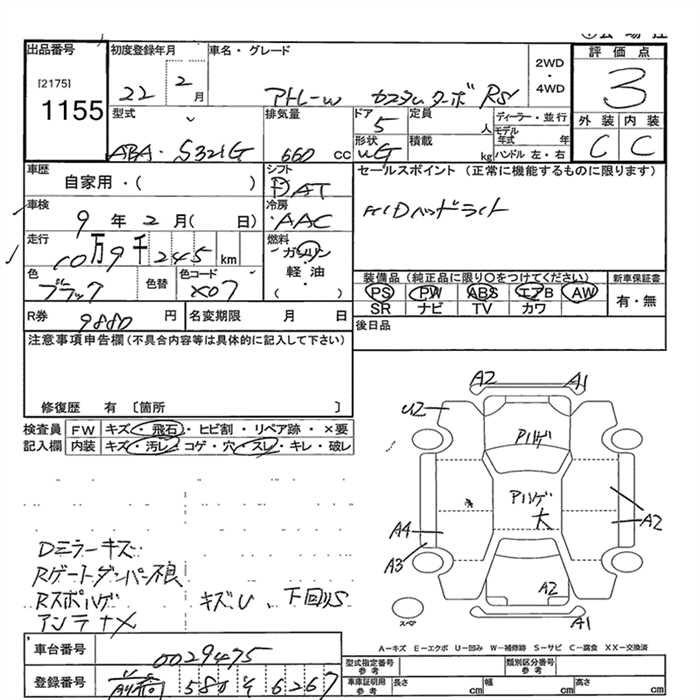 出品番号
[2175]
1155
初度登録年月
22 2月
車名・グレード
アトレーW カスタムターボ RS
2WD
・
4WD
評価点
3
外装 内装
C C
型式
ABA-S321G
排気量
660 cc
ドア
5
形状
定員
人
積載
kg
ディーラー・並行
モデル年式 年
ハンドル 左・右
車歴
自家用・( )
シフト
AT
車検
9年2月( 日)
冷房
AAC
走行
10万9千245km
燃料
ガソリン
軽油
( )
色
ブラック
色替
色コード
X07
R券
9880円
名変期限 月 日
セールスポイント (正常に機能するものに限ります)
HIDヘッドライト
装備品 (純正品に限り〇をつけてください)
PS PW ABS エアB AW
SR ナビ TV カワ
新車保証書
有・無
後日品
注意事項申告欄(不具合内容等は具体的に記入して下さい)
修復歴 有 [箇所 ]
検査員記入欄
FW キズ・飛石・ヒビ割・リペア跡・×要
内装 キズ・汚レ・コゲ・穴・スレ・キレ・破レ
A2 A1
U2
Aハゲ
Aハゲ
大
A4
A3
A2
A2
A1
スペア
Dミラーキズ
Rゲートダンパー不良
Rスポハゲ キズU、下回りS
アンテナ×
A-キズ E-エクボ U-凹み W-補修跡 S-サビ C-腐食 XX-交換済
車台番号
0029475
登録番号
580 6267
型式指定番号
参考
類別区分番号
参考
車庫証明用
参考
長さ cm 幅 cm 高さ cm